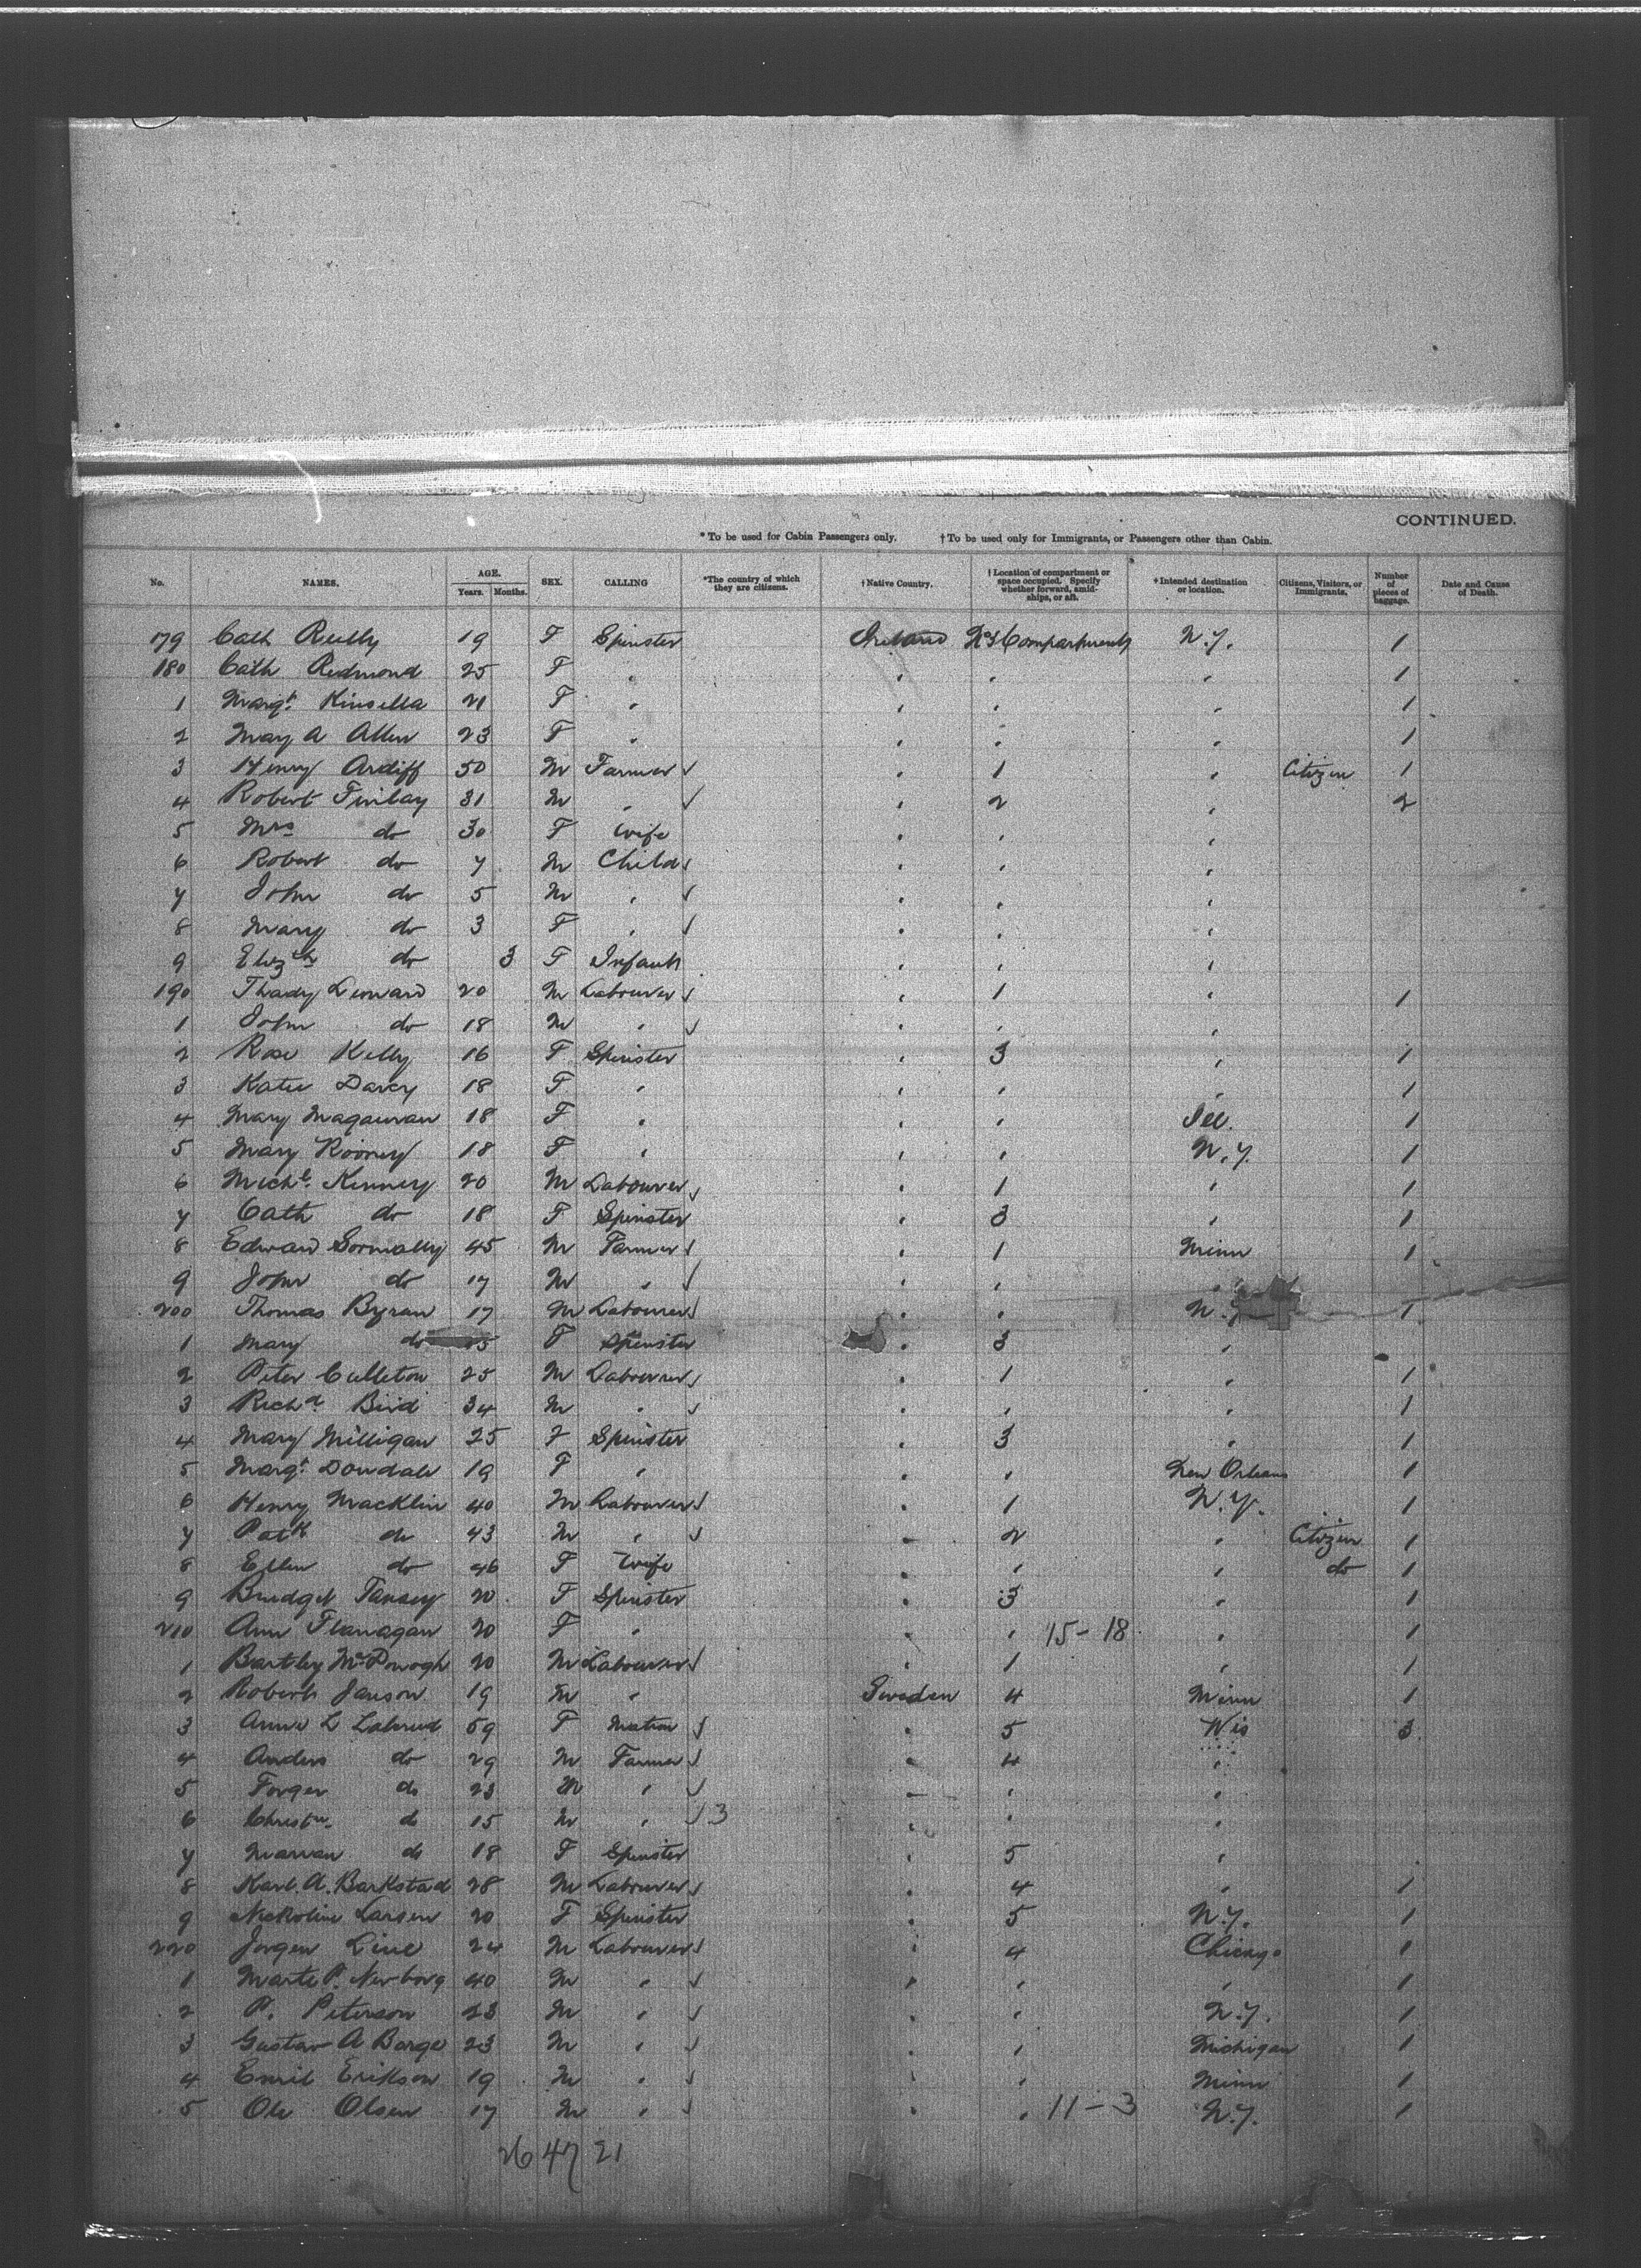 CONTINUED.
* To be used for Cabin Passengers only. † To be used only for Immigrants, or Passengers other than Cabin.
No. NAMES. AGE. Years. Months. SEX. CALLING *The country of which they are citizens. †Native Country. †Location of compartment or space occupied. Specify whether forward, amidships, or aft. †Intended destination or location. Citizens, Visitors, or Immigrants. Number of pieces of baggage. Date and Cause of Death.
179 Cath Reilly 19 F Spinster Ireland No 3 Compartment N.Y. 1
180 Cath Redmond 25 F " " " " 1
1 Margt Kinsella 21 F " " " " 1
2 Mary A Allen 23 F " " " " 1
3 Henry Ardiff 50 M Farmer " 1 " Citizen 1
4 Robert Finlay 31 M " " 2 " 2
5 Mrs do 30 F Wife " " "
6 Robert do 7 M Child " " "
7 John do 5 M " " " "
8 Mary do 3 F " " " "
9 Elizth do 3 F Infant " " "
190 Thady Leonard 20 M Labourer " 1 " 1
1 John do 18 M " " " "
2 Rose Kelly 16 F Spinster " 3 " 1
3 Katie Darcy 18 F " " " " 1
4 Mary Magauran 18 F " " " Ill. 1
5 Mary Rooney 18 F " " " N.Y. 1
6 Michl Kenney 20 M Labourer " 1 " 1
7 Cath do 18 F Spinster " 3 " 1
8 Edward Gormally 45 M Farmer " 1 Minn 1
9 John do 17 M " " " "
200 Thomas Byran 17 M Labourer " " N.Y. 1
1 Mary do 5 F Spinster " 3 "
2 Peter Culleton 25 M Labourer " 1 " 1
3 Richd Bird 34 M " " " " 1
4 Mary Milligan 25 F Spinster " 3 " 1
5 Margt Dowdale 19 F " " " New Orleans 1
6 Henry Macklin 40 M Labourer " 1 N.Y. 1
7 Patk do 43 M " " 2 " Citizen 1
8 Ellen do 46 F Wife " " " do 1
9 Bridget Tansey 20 F Spinster " 3 " 1
210 Ann Flanagan 20 F " " " 15-18 " 1
1 Bartley McDonogh 20 M Labourer " 1 " 1
2 Robert Janson 19 M " Sweden 4 Minn 1
3 Anne L 59 F Matron " 5 Wis 3
4 Anders do 29 M Farmer " 4 "
5 Torger do 23 M " " " "
6 Christn do 15 M " 3 " " "
7 Marian do 18 F Spinster " 5 "
8 Karl A. Barkstad 28 M Labourer " 4 " 1
9 Nickoline Larsen 20 F Spinster " 5 N.Y. 1
220 Jorgen Line 24 M Labourer " 4 Chicago 1
1 Marte P. Newborg 40 M " " " " 1
2 P. Peterson 23 M " " " N.Y. 1
3 Gustav A Borge 23 M " " " Michigan 1
4 Emil Erikson 19 M " " " Minn 1
5 Ole Olsen 17 M " " " 11-3 N.Y. 1
26 47 21